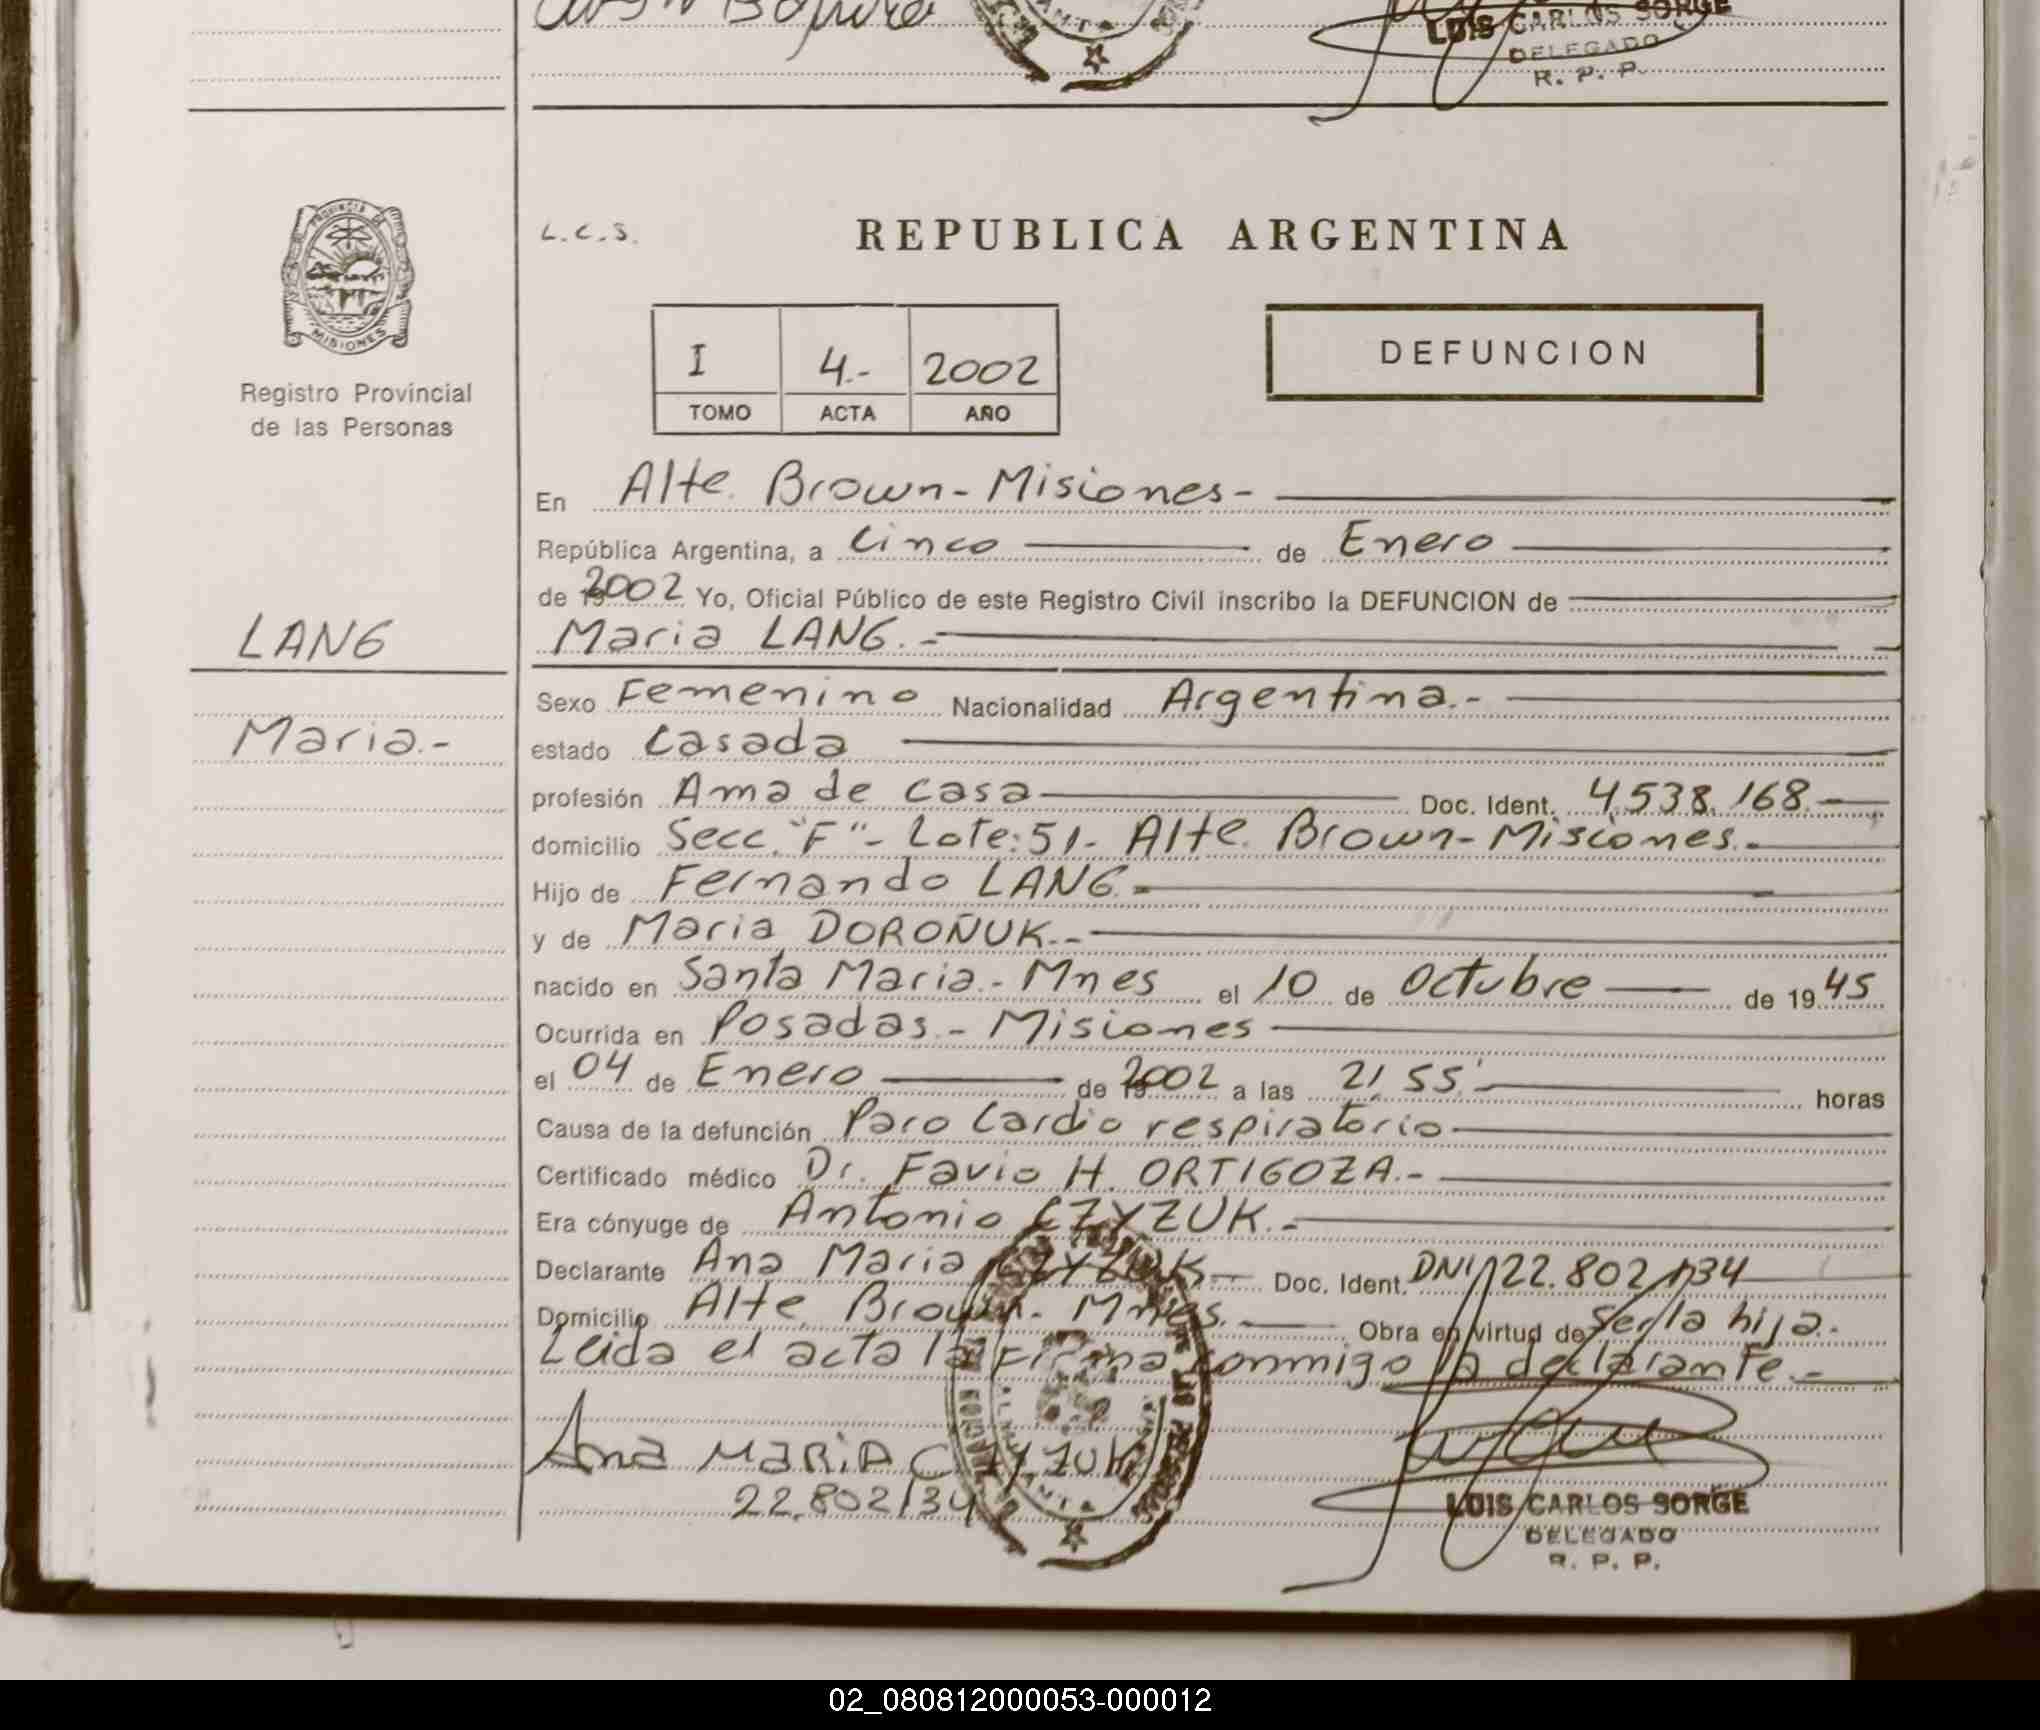 LUIS CARLOS SORGE
DELEGADO
R. P. P.
PROVINCIA DE
MISIONES
Registro Provincial
de las Personas
L.C.S.
REPUBLICA ARGENTINA
I 4.- 2002
TOMO ACTA AÑO
DEFUNCION
En Alte. Brown - Misiones -
República Argentina, a Cinco de Enero
de 2002 Yo, Oficial Público de este Registro Civil inscribo la DEFUNCION de
LANG
Maria LANG.-
Sexo Femenino Nacionalidad Argentina.-
Maria.-
estado Casada
profesión Ama de casa Doc. Ident. 4.538.168.-
domicilio Secc. "F" - Lote: 51 - Alte. Brown - Misiones.-
Hijo de Fernando LANG.-
y de Maria DOROÑUK.-
nacido en Santa Maria.- Mnes el 10 de Octubre de 1945
Ocurrida en Posadas.- Misiones
el 04 de Enero de 2002 a las 21,55' horas
Causa de la defunción Paro Cardio respiratorio
Certificado médico Dr. Favio H. ORTIGOZA.-
Era cónyuge de Antonio CZYZUK.-
Declarante Ana Maria CZYZUK Doc. Ident. DNI 22.802.134
Domicilio Alte. Brown - Mnes. Obra en virtud de Ser la hija.-
Leida el acta la firma conmigo la declarante.-
Ana MARiA CZYZUK
22.802134
LUIS CARLOS SORGE
DELEGADO
R. P. P.
02_080812000053-000012